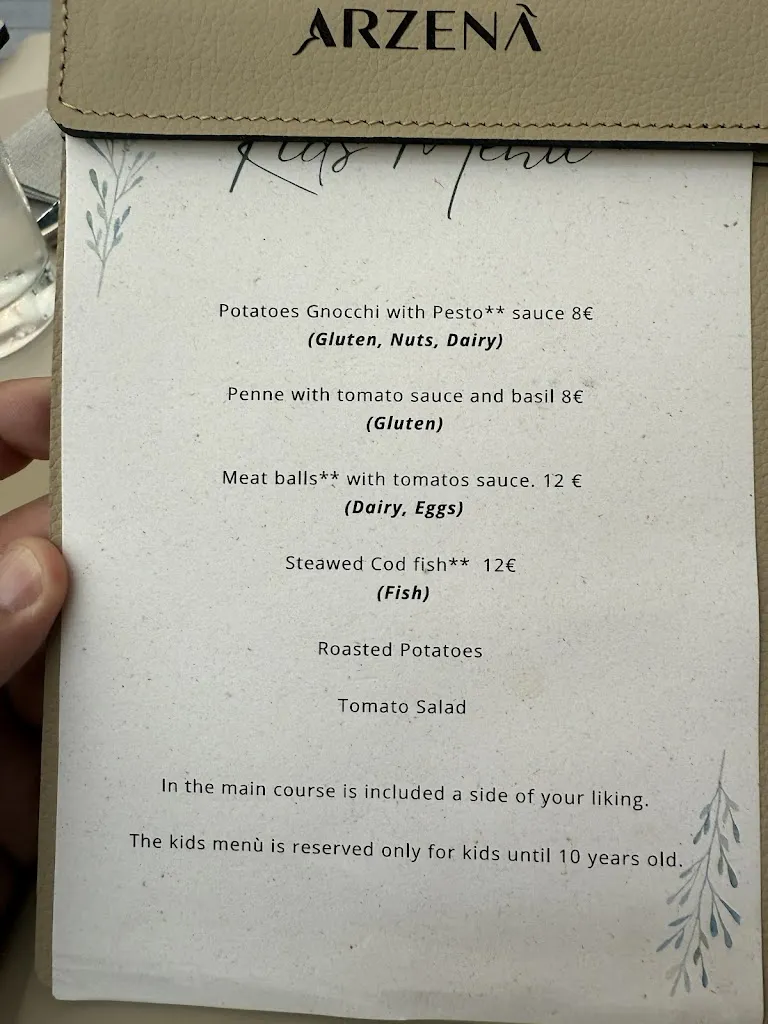 ARZENÃ
Kids Menù
Potatoes Gnocchi with Pesto** sauce 8€
(Gluten, Nuts, Dairy)
Penne with tomato sauce and basil 8€
(Gluten)
Meat balls** with tomatos sauce. 12 €
(Dairy, Eggs)
Steawed Cod fish** 12€
(Fish)
Roasted Potatoes
Tomato Salad
In the main course is included a side of your liking.
The kids menù is reserved only for kids until 10 years old.